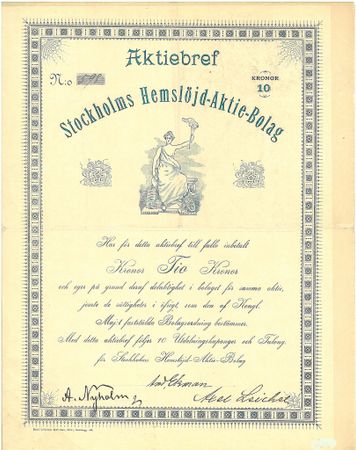 Aktiebref
N:o
KRONOR
10
Stockholms Hemslöjd-Aktie-Bolag
Har för detta aktiebref till fullo inbetalt
Kronor Tio Kronor
och eger på grund deraf delaktighet i bolaget för samma aktie,
jemte de rättigheter i öfrigt, som den af Kongl.
Maj:t fastställda Bolagsordning bestämmer.
Med detta aktiebref följer 10 Utdelningskuponger och Talong.
för Stockholms Hemslöjd-Aktie-Bolag
A. Nyholm